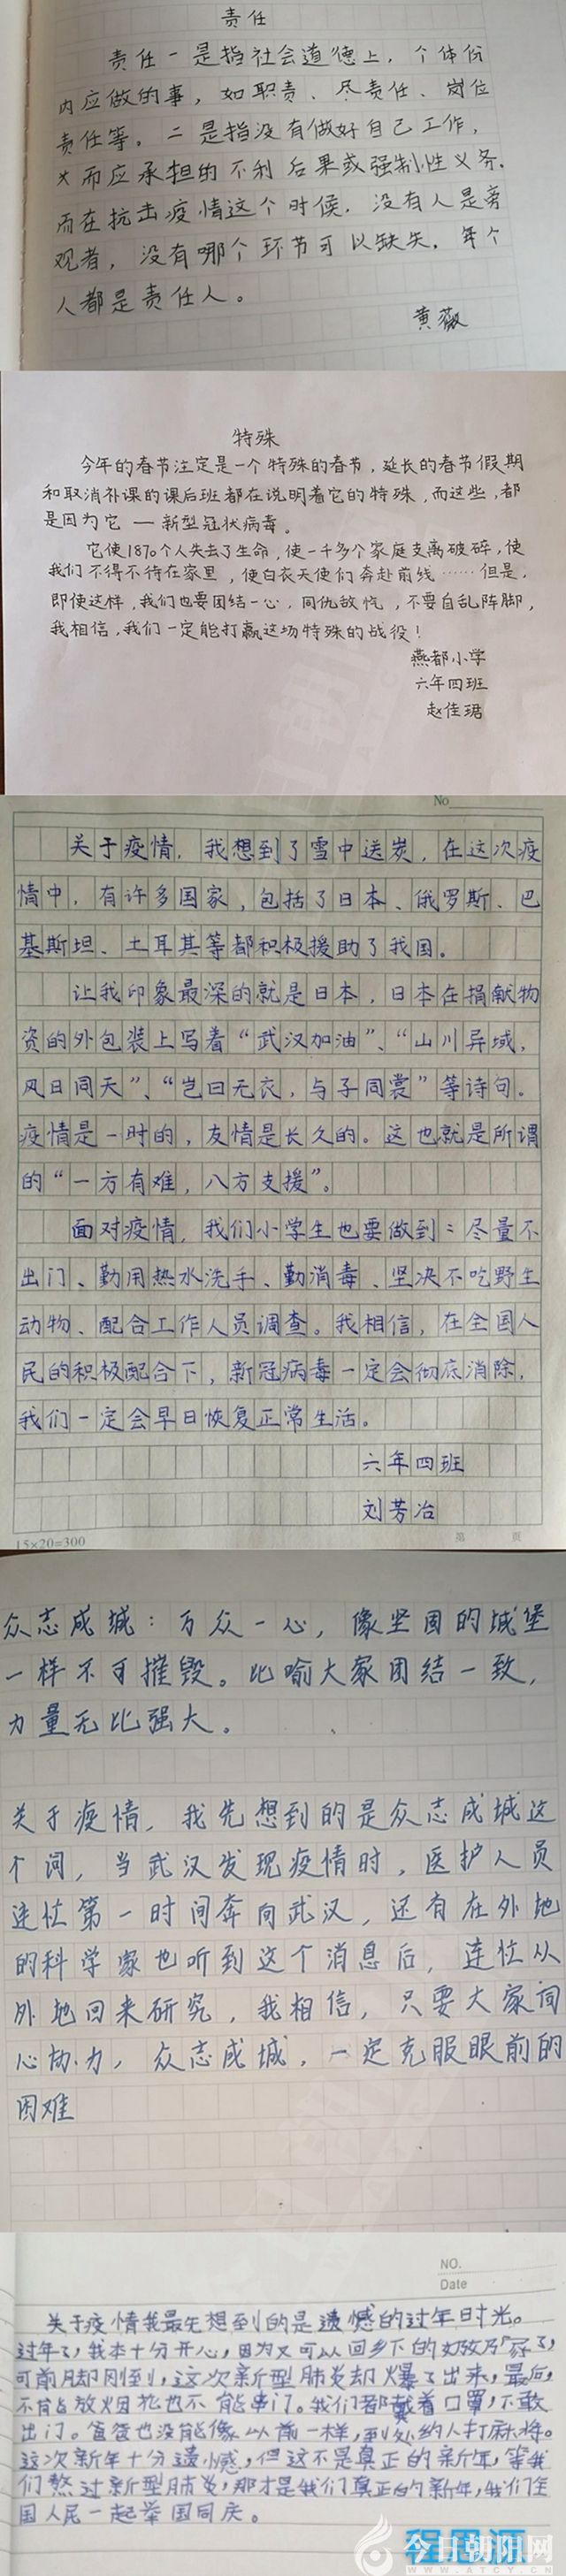 责任
责任一是指社会道德上，个体份
内应做的事，如职责、尽责任、岗位
责任等。二是指没有做好自己工作，
而应承担的不利后果或强制性义务.
而在抗击疫情这个时候，没有人是旁
观者，没有哪个环节可以缺失，每个
人都是责任人。
黄薇
特殊
今年的春节注定是一个特殊的春节，延长的春节假期
和取消补课的课后班都在说明着它的特殊，而这些，都
是因为它一新型冠状病毒。
它使1870个人失去了生命，使一千多个家庭支离破碎，使
我们不得不待在家里，使白衣天使们奔赴前线……但是，
即使这样，我们也要团结一心，同仇敌忾，不要自乱阵脚，
我相信，我们一定能打赢这场特殊的战役！
燕都小学
六年四班
赵佳珺
No
关于疫情，我想到了雪中送炭，在这次疫
情中，有许多国家，包括了日本、俄罗斯、巴
基斯坦、土耳其等都积极援助了我国。
让我印象最深的就是日本，日本在捐献物
资的外包装上写着“武汉加油”、“山川异域，
风日同天”、“岂曰无衣，与子同裳”等诗句。
疫情是一时的，友情是长久的。这也就是所谓
的“一方有难，八方支援”。
面对疫情，我们小学生也要做到：尽量不
出门、勤用热水洗手、勤消毒、坚决不吃野生
动物、配合工作人员调查。我相信，在全国人
民的积极配合下，新冠病毒一定会彻底消除，
我们一定会早日恢复正常生活。
六年四班
刘芳冶
15×20=300
第 页
众志成城：万众一心，像坚固的城堡
一样不可摧毁。比喻大家团结一致，
力量无比强大。
关于疫情，我先想到的是众志成城这
个词，当武汉发现疫情时，医护人员
连忙第一时间奔向武汉，还有在外地
的科学家也听到这个消息后，连忙从
外地回来研究，我相信，只要大家同
心协力，众志成城，一定克服眼前的
困难
NO.
Date
关于疫情我最先想到的是遗憾的过年时光。
过年了，我本十分开心，因为又可以回乡下的奶奶家了，
可前脚刚到，这次新型肺炎却爆了出来，最后，
不能放烟花也不能串门。我们都戴着口罩，不敢
出门。爸爸也没能像以前一样，到处约人打麻将。
这次新年十分遗憾，但这不是真正的新年，等我
们熬过新型肺炎，那才是我们真正的新年，我们全
国人民一起举国同庆。
程思源
今日朝阳网
WWW.ATCY.CN